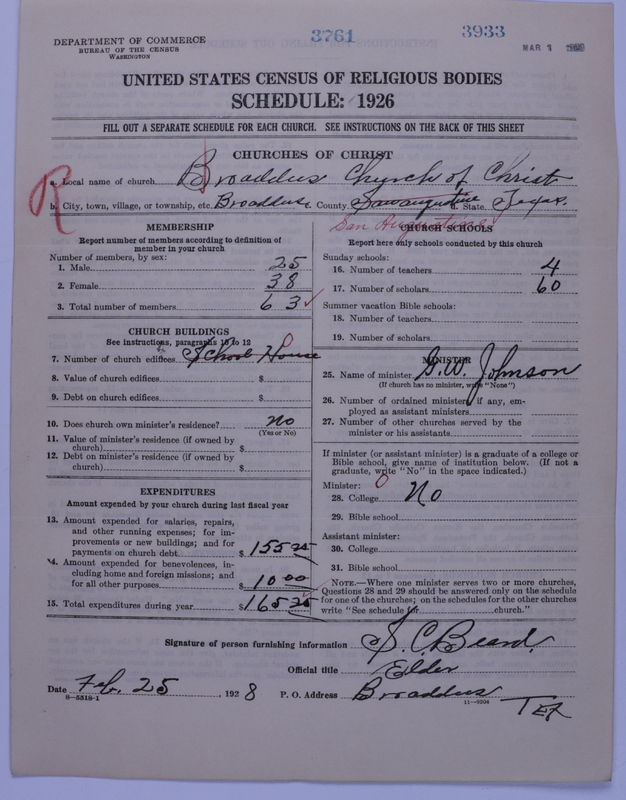 3761
3933
DEPARTMENT OF COMMERCE
BUREAU OF THE CENSUS
WASHINGTON
MAR 1
UNITED STATES CENSUS OF RELIGIOUS BODIES
SCHEDULE: 1926
FILL OUT A SEPARATE SCHEDULE FOR EACH CHURCH. SEE INSTRUCTIONS ON THE BACK OF THIS SHEET
CHURCHES OF CHRIST
R
a. Local name of church Broaddus Church of Christ
b. City, town, village, or township, etc. Broaddus c. County Sanaugustine d. State Texas.
San Augustine
MEMBERSHIP
Report number of members according to definition of
member in your church
Number of members, by sex:
1. Male 25
2. Female 38
3. Total number of members 63
CHURCH BUILDINGS
See instructions, paragraphs 10 to 12
7. Number of church edifices School House
8. Value of church edifices $
9. Debt on church edifices $
10. Does church own minister's residence? no
(Yes or No)
11. Value of minister's residence (if owned by
church) $
12. Debt on minister's residence (if owned by
church) $
EXPENDITURES
Amount expended by your church during last fiscal year
13. Amount expended for salaries, repairs,
and other running expenses; for im-
provements or new buildings; and for
payments on church debt $ 155 25
14. Amount expended for benevolences, in-
cluding home and foreign missions; and
for all other purposes 10 00
15. Total expenditures during year $ 165 25
CHURCH SCHOOLS
Report here only schools conducted by this church
Sunday schools:
16. Number of teachers 4
17. Number of scholars 60
Summer vacation Bible schools:
18. Number of teachers
19. Number of scholars
MINISTER
25. Name of minister G.W. Johnson
(If church has no minister, write "None")
26. Number of ordained ministers, if any, em-
ployed as assistant ministers
27. Number of other churches served by the
minister or his assistants
If minister (or assistant minister) is a graduate of a college or
Bible school, give name of institution below. (If not a
graduate, write "No" in the space indicated.)
Minister: 0
28. College No
29. Bible school
Assistant minister:
30. College
31. Bible school
NOTE.—Where one minister serves two or more churches,
Questions 28 and 29 should be answered only on the schedule
for one of the churches; on the schedules for the other churches
write "See schedule for church."
Signature of person furnishing information S. C. Beard.
Official title Elder
Date Feb. 25, 1928 P. O. Address Broaddus
Tex
8—5518-1
11—9204